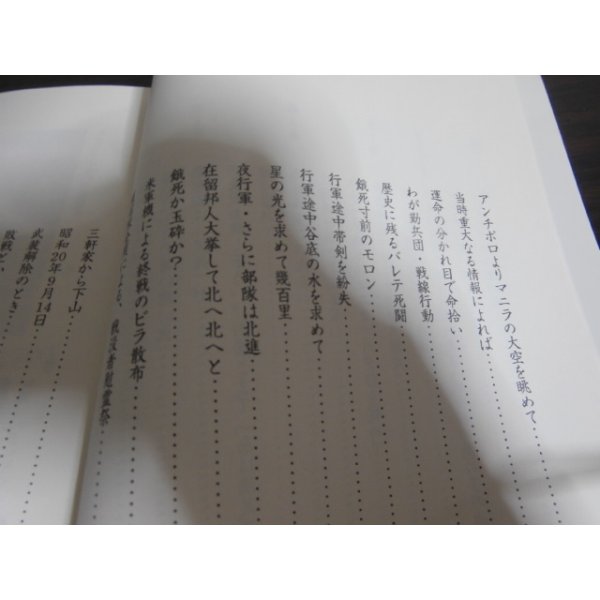 アンチポロよりマニラの大空を眺めて
当時重大なる情報によれば
運命の分かれ目で命拾い
わが勤兵団・戦線行動
歴史に残るバレテ死闘
餓死寸前のモロン
行軍途中帯剣を紛失
行軍途中谷底の水を求めて
星の光を求めて幾百里
夜行軍・さらに部隊は北進
在留邦人大挙して北へ北へと
餓死か玉砕か?
米軍機による終戦のビラ散布
による、戦没者慰霊祭
三軒家から下山
昭和20年9月14日
武装解除のとき
敗戦とい